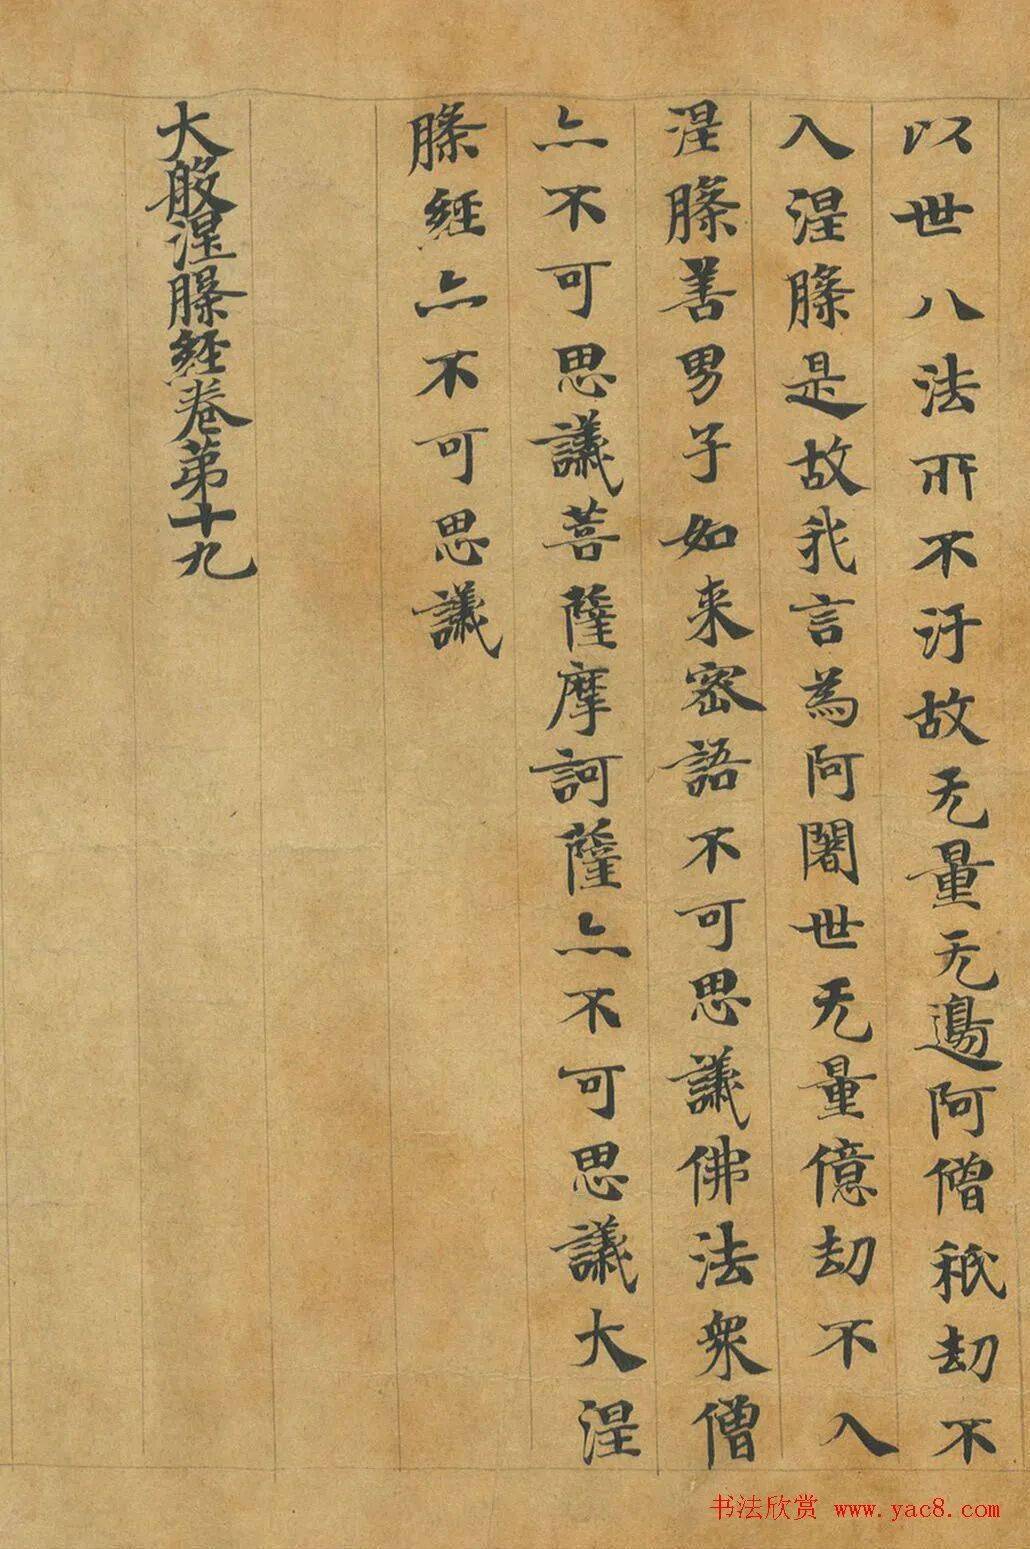 以世八法所不汙故无量无邊阿僧秖劫不
入涅槃是故我言為阿闍世无量億劫不入
涅槃善男子如来密語不可思議佛法衆僧
亦不可思議菩薩摩訶薩亦不可思議大涅
槃經亦不可思議
大般涅槃經卷第十九
书法欣赏 www.yac8.com